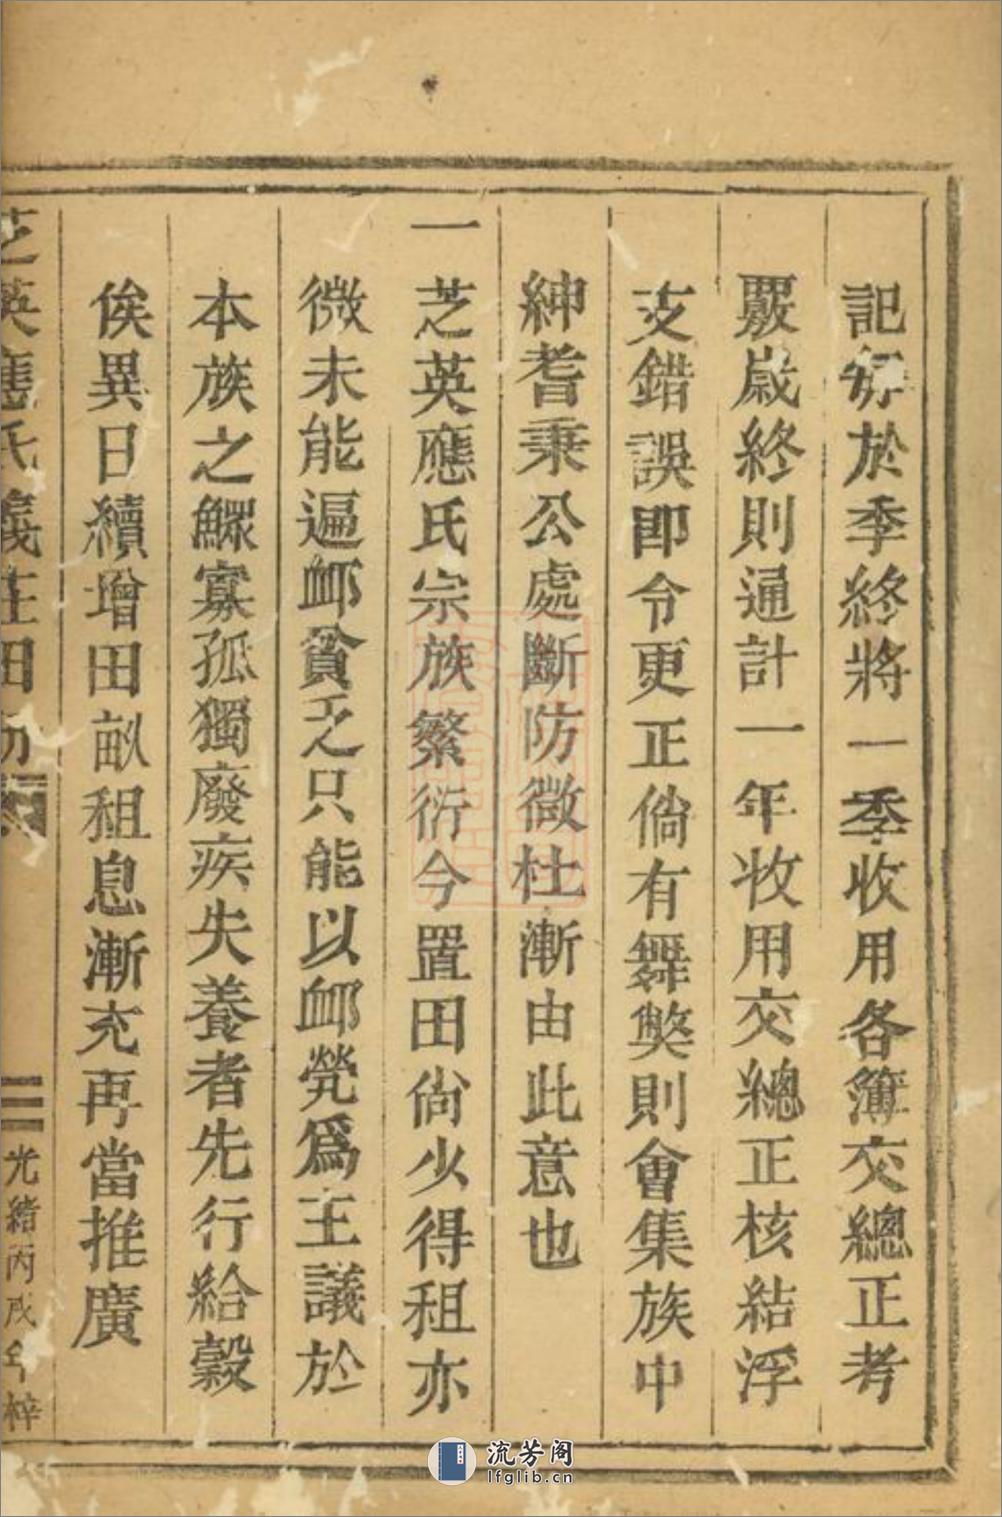 記每於季終將一季收用各簿交總正考
覈歲終則通計一年收用交總正核結浮
支錯誤即令更正倘有舞獘則會集族中
紳耆秉公處斷防微杜漸由此意也
一芝英應氏宗族繁衍今置田尙少得租亦
微未能遍卹貧乏只能以卹煢爲主議於
本族之鰥寡孤獨廢疾失養者先行給穀
俟異日續增田畝租息漸充再當推廣
芝英應氏義莊田
二 光緒丙戌年梓
流芳阁
lfglib.cn